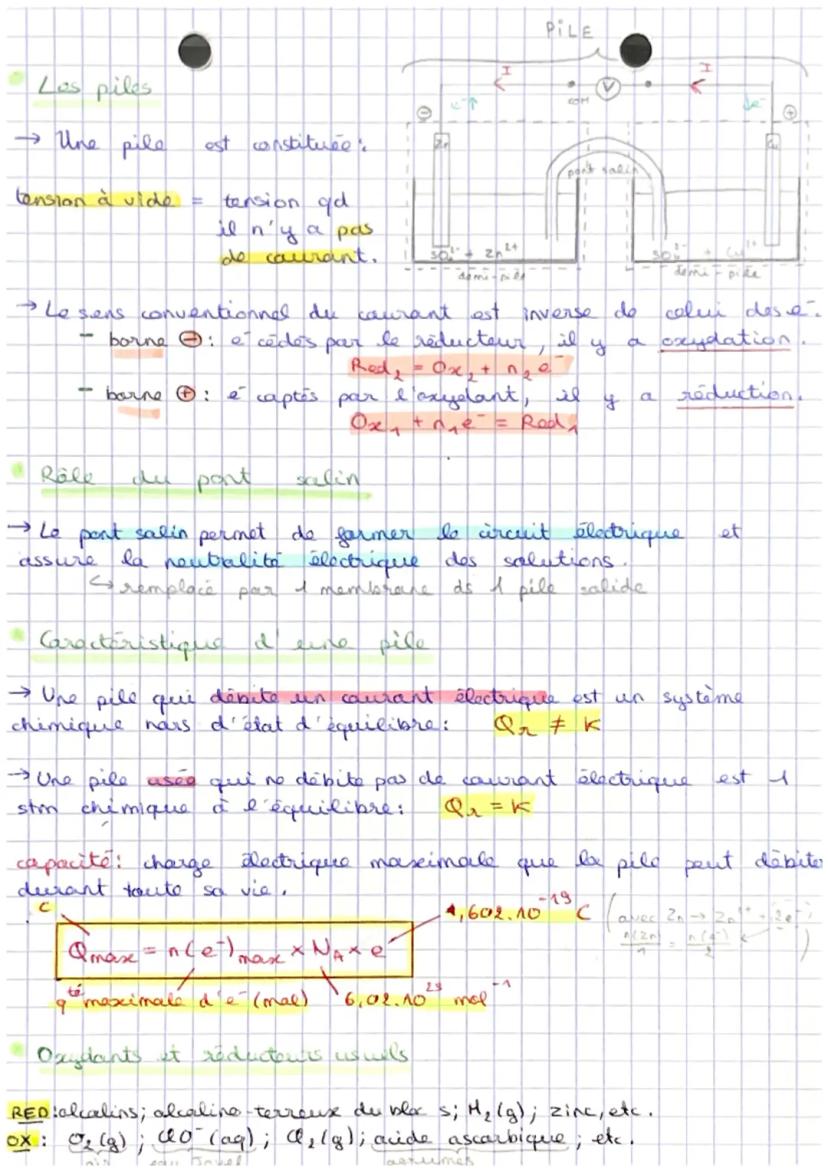 PiLE
Les piles
I
I
V
COM
e⁻↑
↓e⁻
⊖
⊕
→ Une pile est constituée :
Zn
Cu
pont salin
tension à vide = tension qd
il n'y a pas
de courant.
SO₄²⁻ + Zn²⁺
SO₄²⁻ + Cu²⁺
demi-pile
demi-pile
→ Le sens conventionnel du courant est inverse de celui des e⁻.
- borne ⊖ : e⁻ cédés par le réducteur, il y a oxydation.
Red₂ = Ox₂ + n₂ e⁻
- borne ⊕ : e⁻ captés par l'oxydant, il y a réduction.
Ox₁ + n₁e⁻ = Red₁
Rôle du pont salin
→ Le pont salin permet de fermer le circuit électrique et
assure la neutralité électrique des solutions.
↳ remplacé par 1 membrane ds 1 pile solide
Caractéristique d'une pile
→ Une pile qui débite un courant électrique est un système
chimique hors d'état d'équilibre : Qr ≠ K
→ Une pile usée qui ne débite pas de courant électrique est 1
stm chimique à l'équilibre : Qr = K
capacité : charge électrique maximale que la pile peut débiter
durant toute sa vie.
C
1,602.10⁻¹⁹ C
(avec Zn → Zn²⁺ + 2e⁻ ;
n(Zn)/1 = n(e⁻)/2 )
Qmax = n(e⁻)max × NA × e
qté maximale d'e⁻ (mol)
6,02.10²³ mol⁻¹
Oxydants et réducteurs usuels
RED : alcalins ; alcalino-terreux du bloc s ; H₂(g) ; zinc, etc.
OX : O₂(g) ; ClO⁻(aq) ; Cl₂(g) ; acide ascorbique ; etc.
air
eau Javel
agrumes